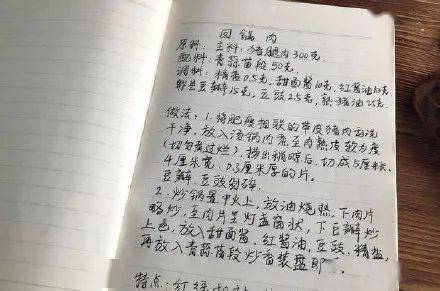 回锅肉
原料：主料：猪腿肉300克
配料：青蒜苗段50克
调料：精盐0.5克，甜面酱10克，红酱油10克
郫县豆瓣15克，豆豉2.5克，熟猪油25克
做法：1.将肥瘦相联的带皮猪肉刮洗
干净，放入汤锅内煮至肉熟皮软为度
（切勿煮过烂），捞出稍晾后，切成5厘米、
4厘米宽、0.3厘米厚的片。
豆瓣、豆豉剁碎。
2.炒锅置中火上，放油烧热，下肉片
略炒，至肉片呈灯盏窝状，下豆瓣炒
上色，放入甜面酱、红酱油、豆豉、精盐，
再放入青蒜苗段炒香装盘即
特点：红绿